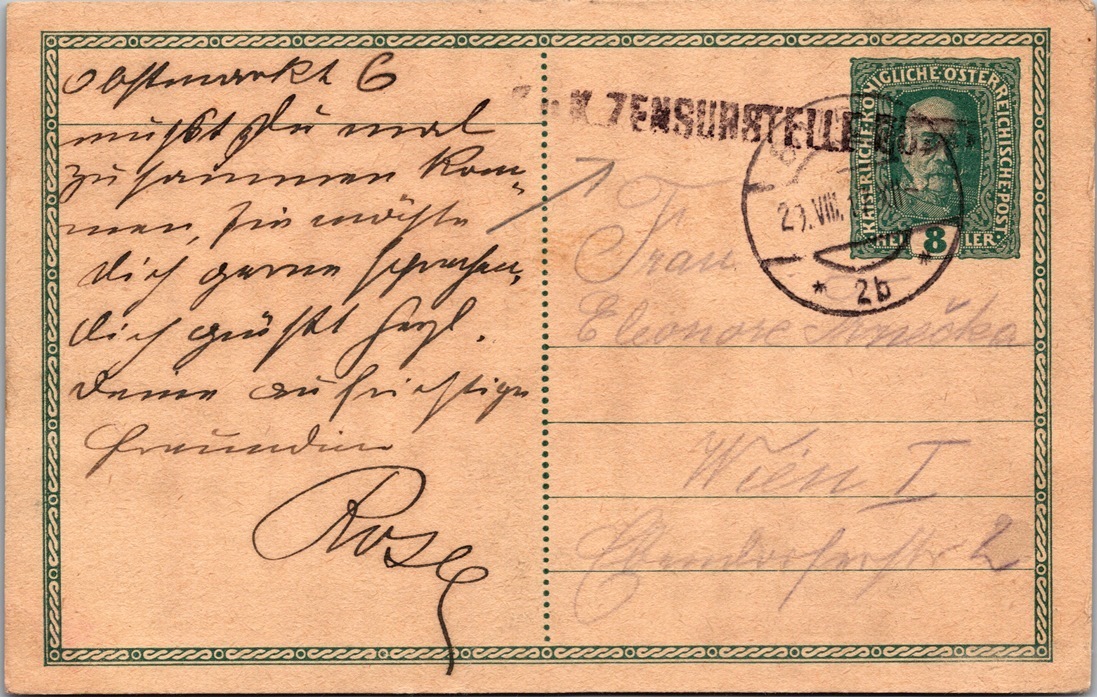 Obstmarkt 6
mußt Du mal
zusammen kom-
men, sie möchte
dich gerne sprechen,
dich grüßt herzl.
Deine aufrichtige
Freundin
Rosl
K. ZENSURSTELLE
KAISERLICHE KÖNIGLICHE ÖSTERREICHISCHE POST
HELLER
8
VIII
2b
Frau
Eleonore
Wien I
2